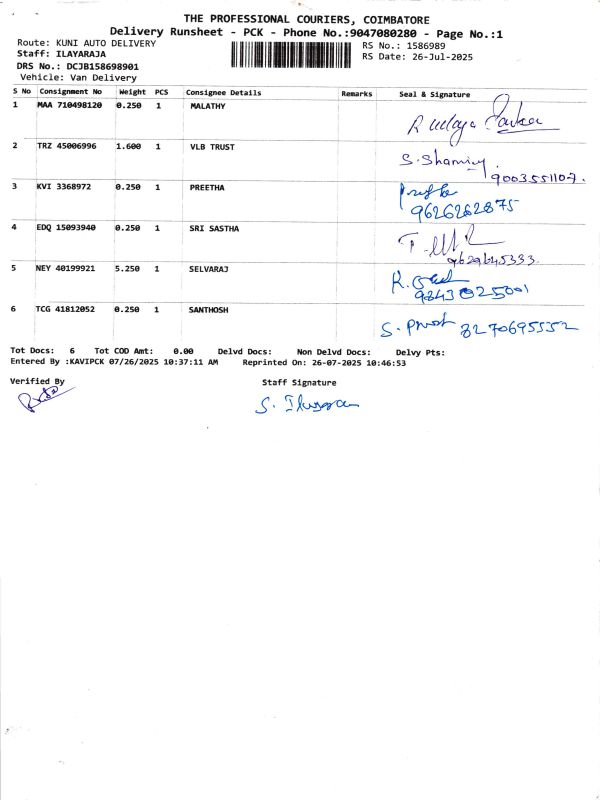 THE PROFESSIONAL COURIERS, COIMBATORE
Delivery Runsheet - PCK - Phone No.:9047080280 - Page No.:1
Route: KUNI AUTO DELIVERY RS No.: 1586989
Staff: ILAYARAJA RS Date: 26-Jul-2025
DRS No.: DCJB158698901
Vehicle: Van Delivery
S No Consignment No Weight PCS Consignee Details Remarks Seal & Signature
1 MAA 710498120 0.250 1 MALATHY
2 TRZ 45006996 1.600 1 VLB TRUST S. Shaminy
9003551107.
3 KVI 3368972 0.250 1 PREETHA
9626262875
4 EDQ 15093940 0.250 1 SRI SASTHA
9629645333.
5 NEY 40199921 5.250 1 SELVARAJ
9843025001
6 TCG 41812052 0.250 1 SANTHOSH
8270695552
Tot Docs: 6 Tot COD Amt: 0.00 Delvd Docs: Non Delvd Docs: Delvy Pts:
Entered By :KAVIPCK 07/26/2025 10:37:11 AM Reprinted On: 26-07-2025 10:46:53
Verified By Staff Signature